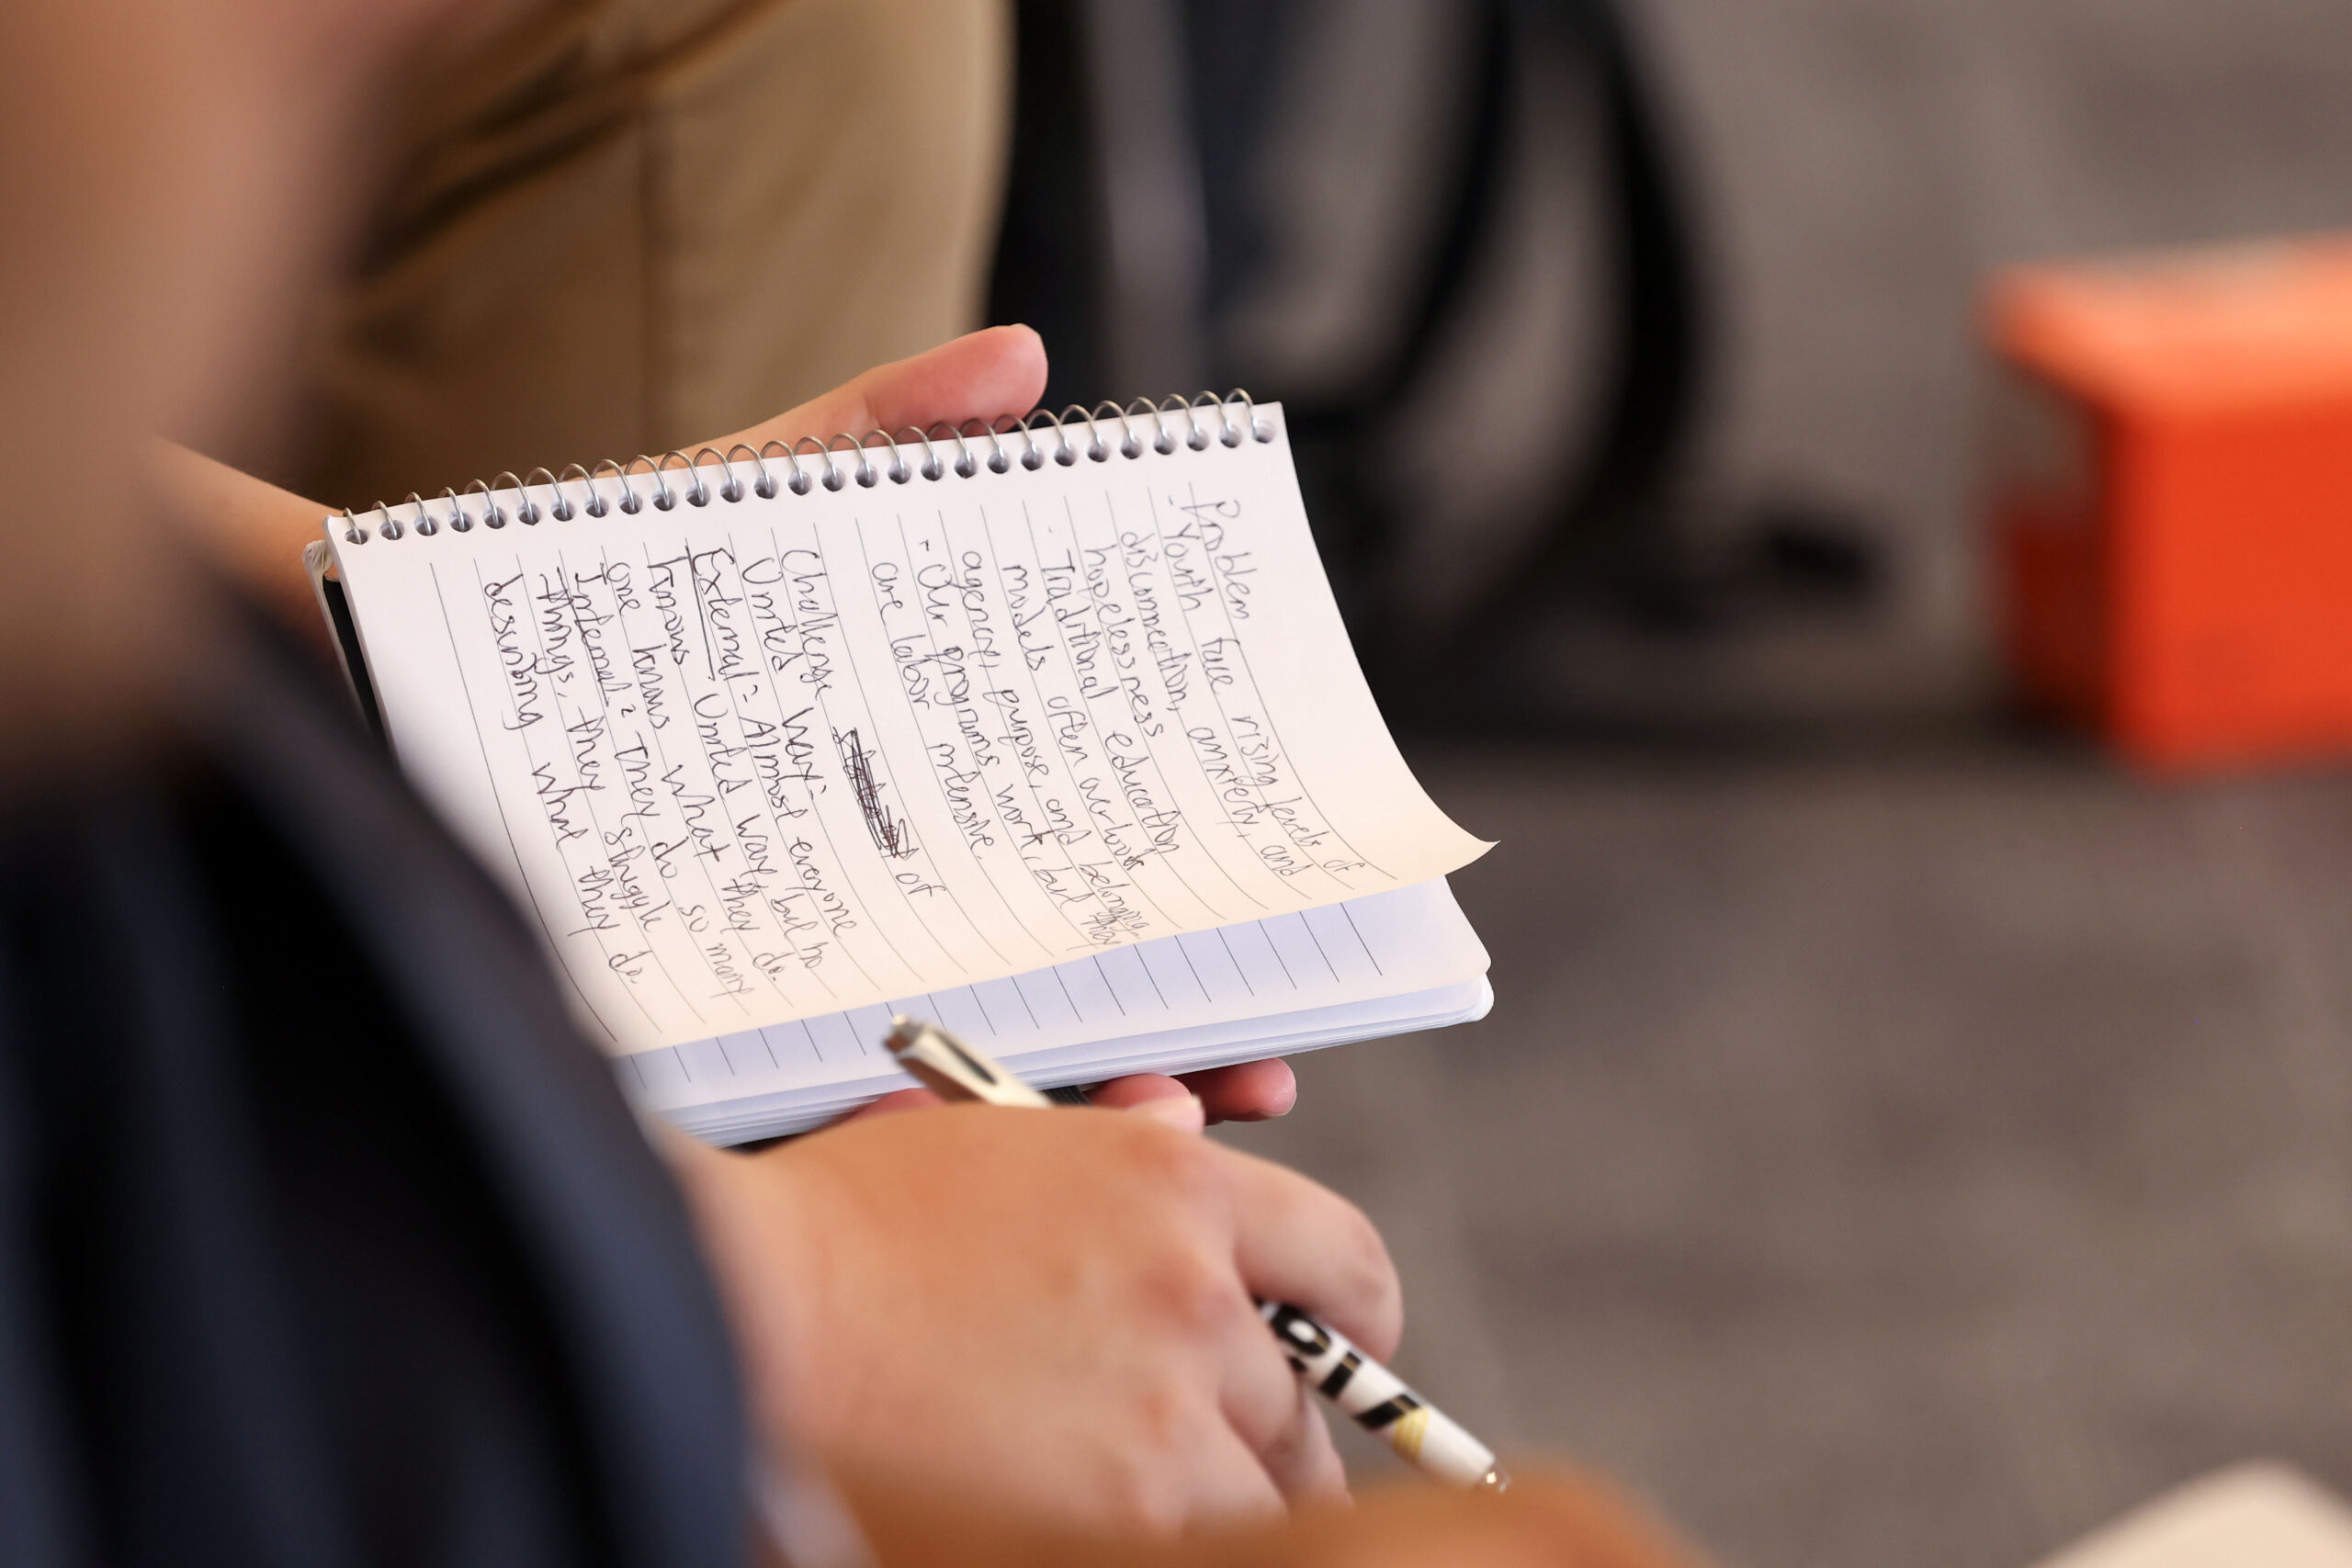 Problem
- Youth face rising levels of
disconnection, anxiety, and
hopelessness
- Traditional education
models often overlook
agency, purpose, and belonging.
- Our programs work, but they
are labor intensive.
of
Challenge
United Way:
External: Almost everyone
knows United Way, but no
one knows what they do.
Internal: They do so many
things, they struggle
desining what they do.